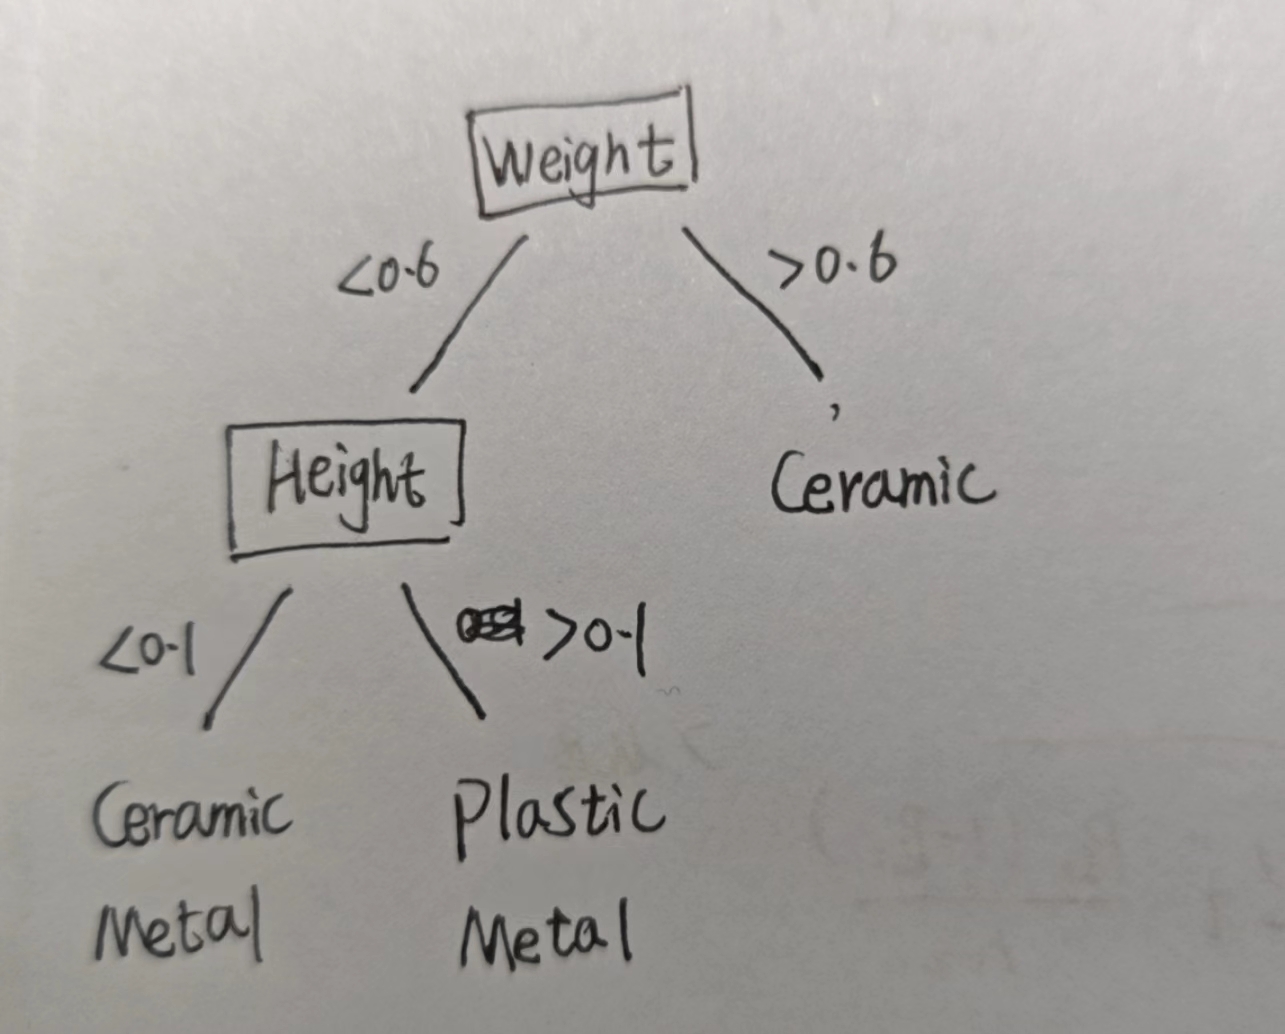 Weight
<0.6
>0.6
Height
Ceramic
<0.1
>0.1
Ceramic
Plastic
Metal
Metal